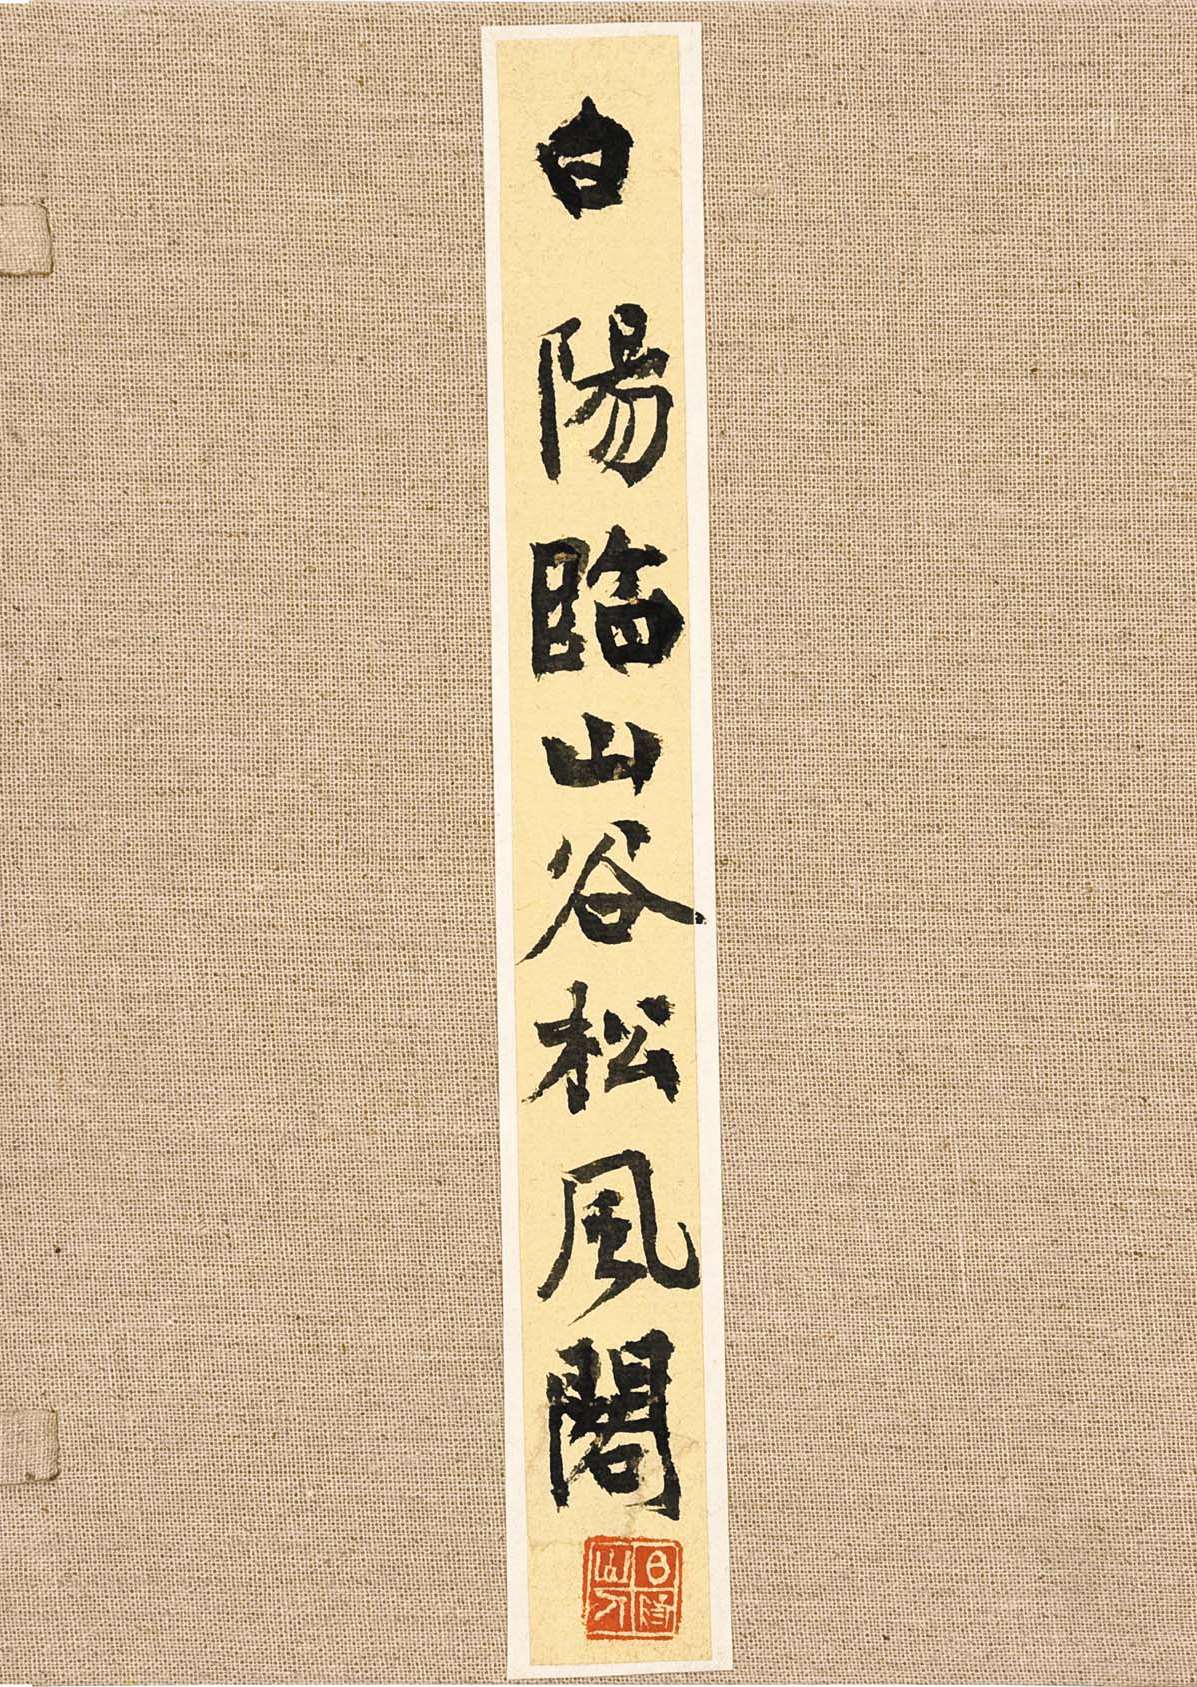 白陽臨山谷松風閣
白陽山人